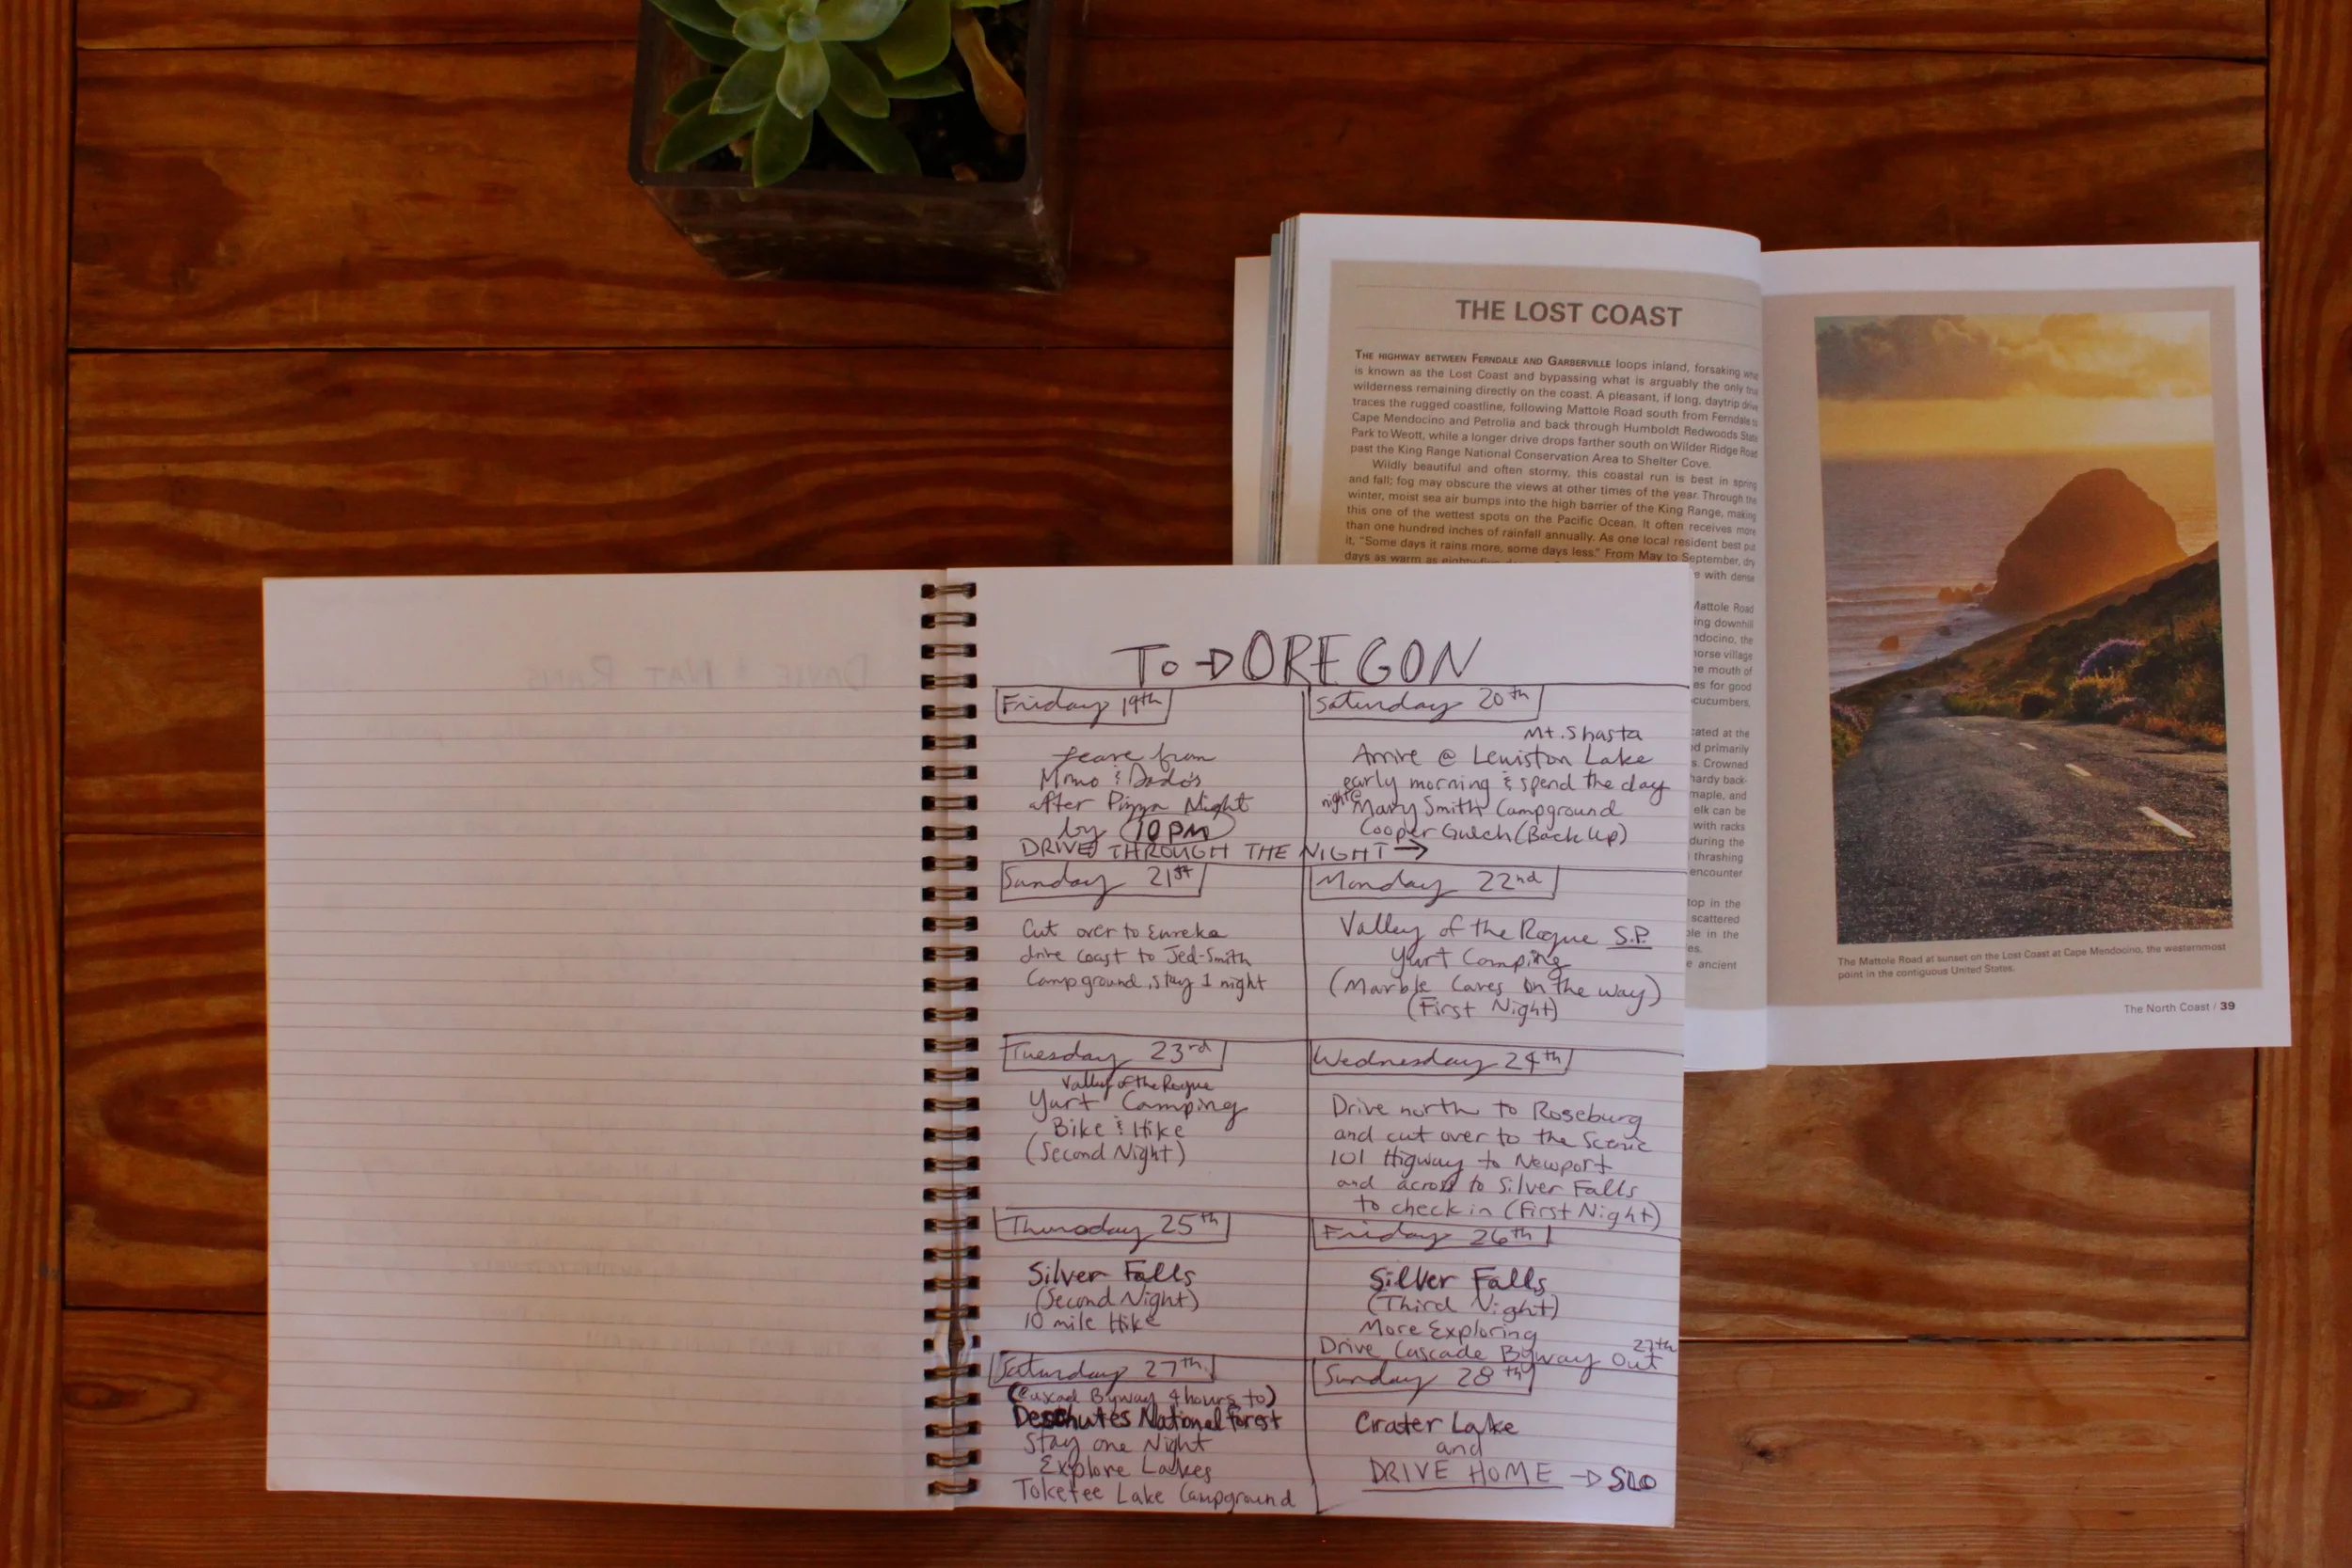 THE LOST COAST
THE HIGHWAY BETWEEN FERNDALE AND GARBERVILLE loops inland, forsaking what
is known as the Lost Coast and bypassing what is arguably the only true
wilderness remaining directly on the coast. A pleasant, if long, daytrip drive
traces the rugged coastline, following Mattole Road south from Ferndale to
Cape Mendocino and Petrolia and back through Humboldt Redwoods State
Park to Weott, while a longer drive drops farther south on Wilder Ridge Road
past the King Range National Conservation Area to Shelter Cove.
Wildly beautiful and often stormy, this coastal run is best in spring
and fall; fog may obscure the views at other times of the year. Through the
winter, moist sea air bumps into the high barrier of the King Range, making
this one of the wettest spots on the Pacific Ocean. It often receives more
than one hundred inches of rainfall annually. As one local resident best put
it, "Some days it rains more, some days less." From May to September, dry
days as warm as
e with dense
Mattole Road
ing downhill
ndocino, the
horse village
he mouth of
es for good
cucumbers.
cated at the
nd primarily
s. Crowned
hardy back-
maple, and
elk can be
with racks
during the
thrashing
encounter
top in the
scattered
ble in the
es.
e ancient
The Mattole Road at sunset on the Lost Coast at Cape Mendocino, the westernmost
point in the contiguous United States.
The North Coast / 39
To → OREGON
Friday 19th
leave from
Mimo & Dado's
after Pizza Night
by 10 PM
DRIVE THROUGH THE NIGHT →
Saturday 20th
Mt. Shasta
Arrive @ Lewiston Lake
early morning & spend the day
night @ Mary Smith Campground
Cooper Gulch (Back Up)
Sunday 21st
Cut over to Eureka
drive coast to Jed-Smith
Campground, stay 1 night
Monday 22nd
Valley of the Rogue S.P.
Yurt Camping
(Marble Caves on the way)
(First Night)
Tuesday 23rd
Valley of the Rogue
Yurt Camping
Bike & Hike
(Second Night)
Wednesday 24th
Drive north to Roseburg
and cut over to the Scenic
101 Higway to Newport
and across to Silver Falls
to check in (First Night)
Thursday 25th
Silver Falls
(Second Night)
10 mile Hike
Friday 26th
Silver Falls
(Third Night)
More Exploring
Drive Cascade Byway Out 27th
Saturday 27th
Byway 4 hours to)
Deschutes National Forest
Stay one Night
Explore Lakes
Toketee Lake Campground
Sunday 28th
Crater Lake
and
DRIVE HOME → SLO